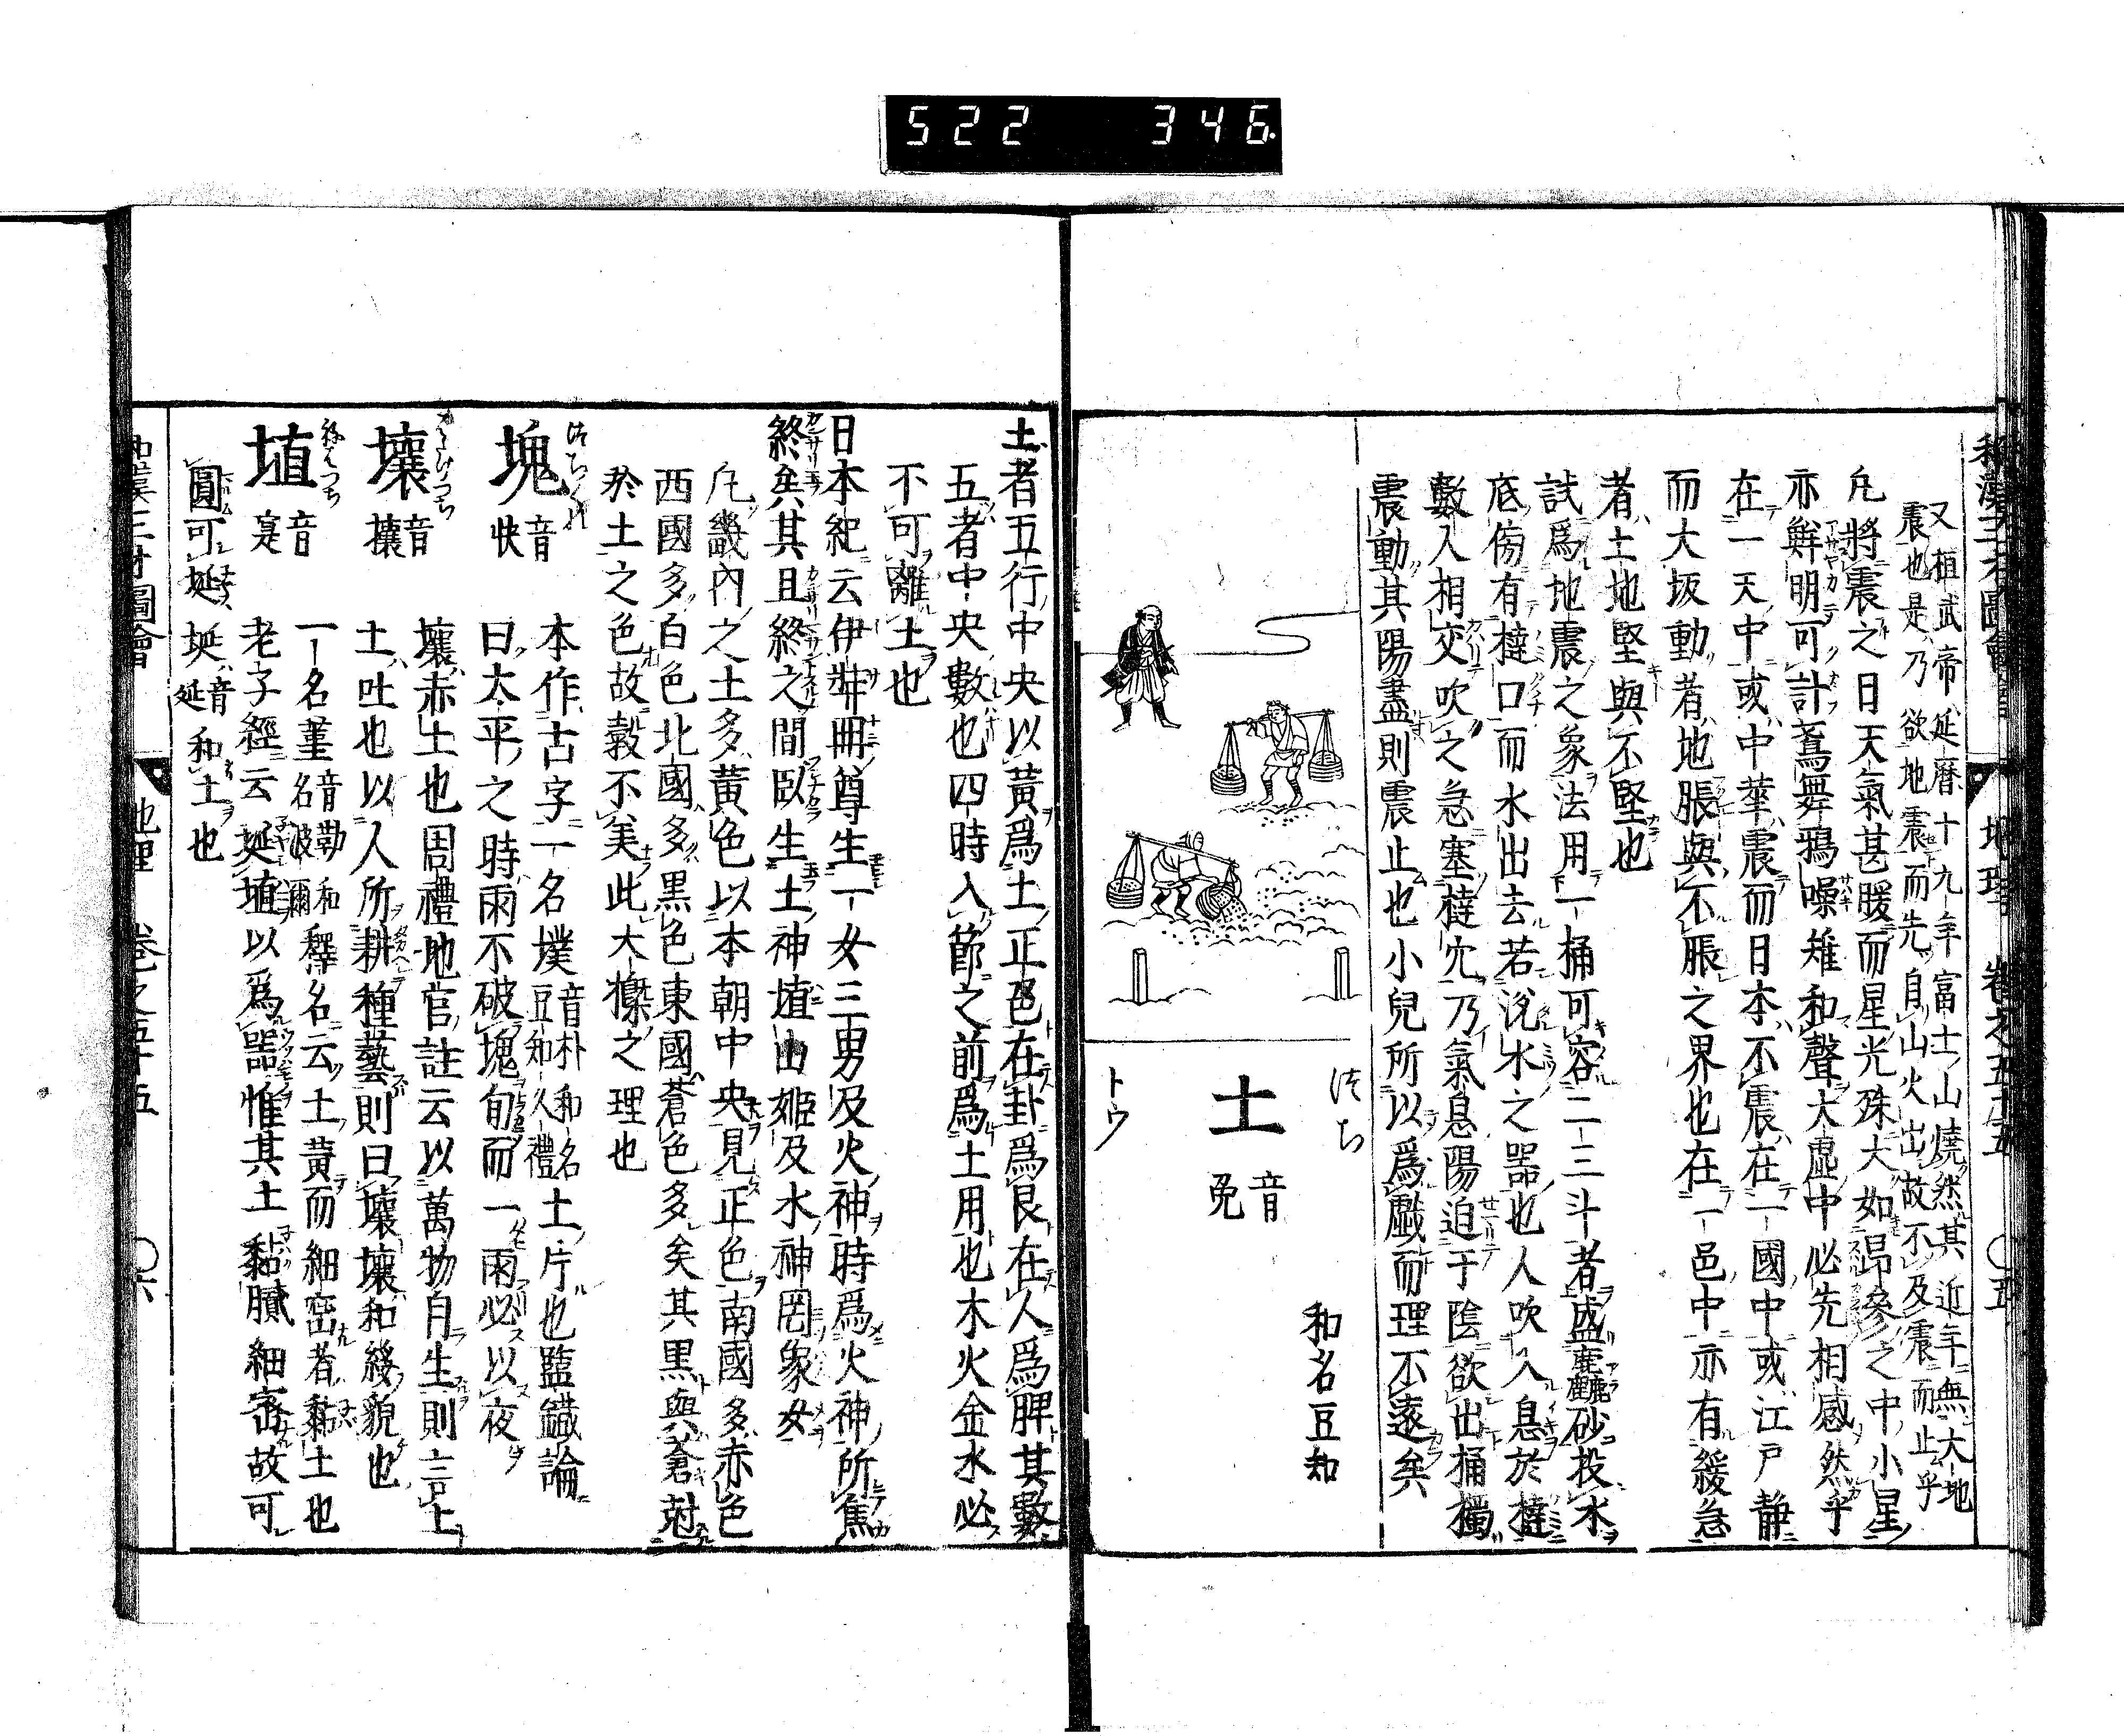 522 346
和漢三才圖會 地理 卷之五十五 〇五
又桓武帝延曆十九年富士山燒然其近年無大地
震也是乃欲地震而先自山火出故不及震而止乎
凡將震之日天氣甚暖而星光殊大如昴參之中小星
亦鮮明可計鳶舞鴉噪雉和聲大虛中必先相感然乎
在一天中或中華震而日本不震在一國中或江戸靜
而大坂動者地脹與不脹之界也在一邑中亦有緩急
者土地堅與不堅也
試爲地震之象法用一桶可容二三斗者盛麁麤砂投水
底傍有撻口而水出去若洗水之噐也人吹入息於撻
數人相交吹之急塞撻穴乃氣息陽迫于陰欲出桶獨
震動其陽盡則震止也小兒所以爲戲而理不遠矣
つち
土 音兎
トウ
和名豆知
土者五行中央以黃爲土正色在卦爲艮在人爲脾其數
五者中央數也四時入節之前爲土用也木火金水必
不可離土也
日本紀云伊弉冊尊生一女三男及火神時爲火神所焦
終矣其且終之間臥生土神埴山姫及水神罔象女
凡畿內之土多黃色以本朝中央見正色南國多赤色
西國多白色北國多黑色東國蒼色多矣其黑與蒼尅
於土之色故穀不美此大槩之理也
つちくれ
塊 音快
本作古字一名墣 音朴和名豆知久禮 土片也鹽鐵論
曰太平之時雨不破塊旬而一雨必以夜
壤 音攘
壤赤土也周禮地官註云以萬物自生則言土
土吐也以人所耕種藝則曰壤壤和緩貌也
ねばつち
埴 音寔
一名墐 音勤和名波爾 釋名云土黃而細密者黏土也
老子經云埏埴以爲噐惟其土黏膩細密故可
圓可埏 埏音延和土也
和漢三才圖會 地理 卷之五十五 〇六